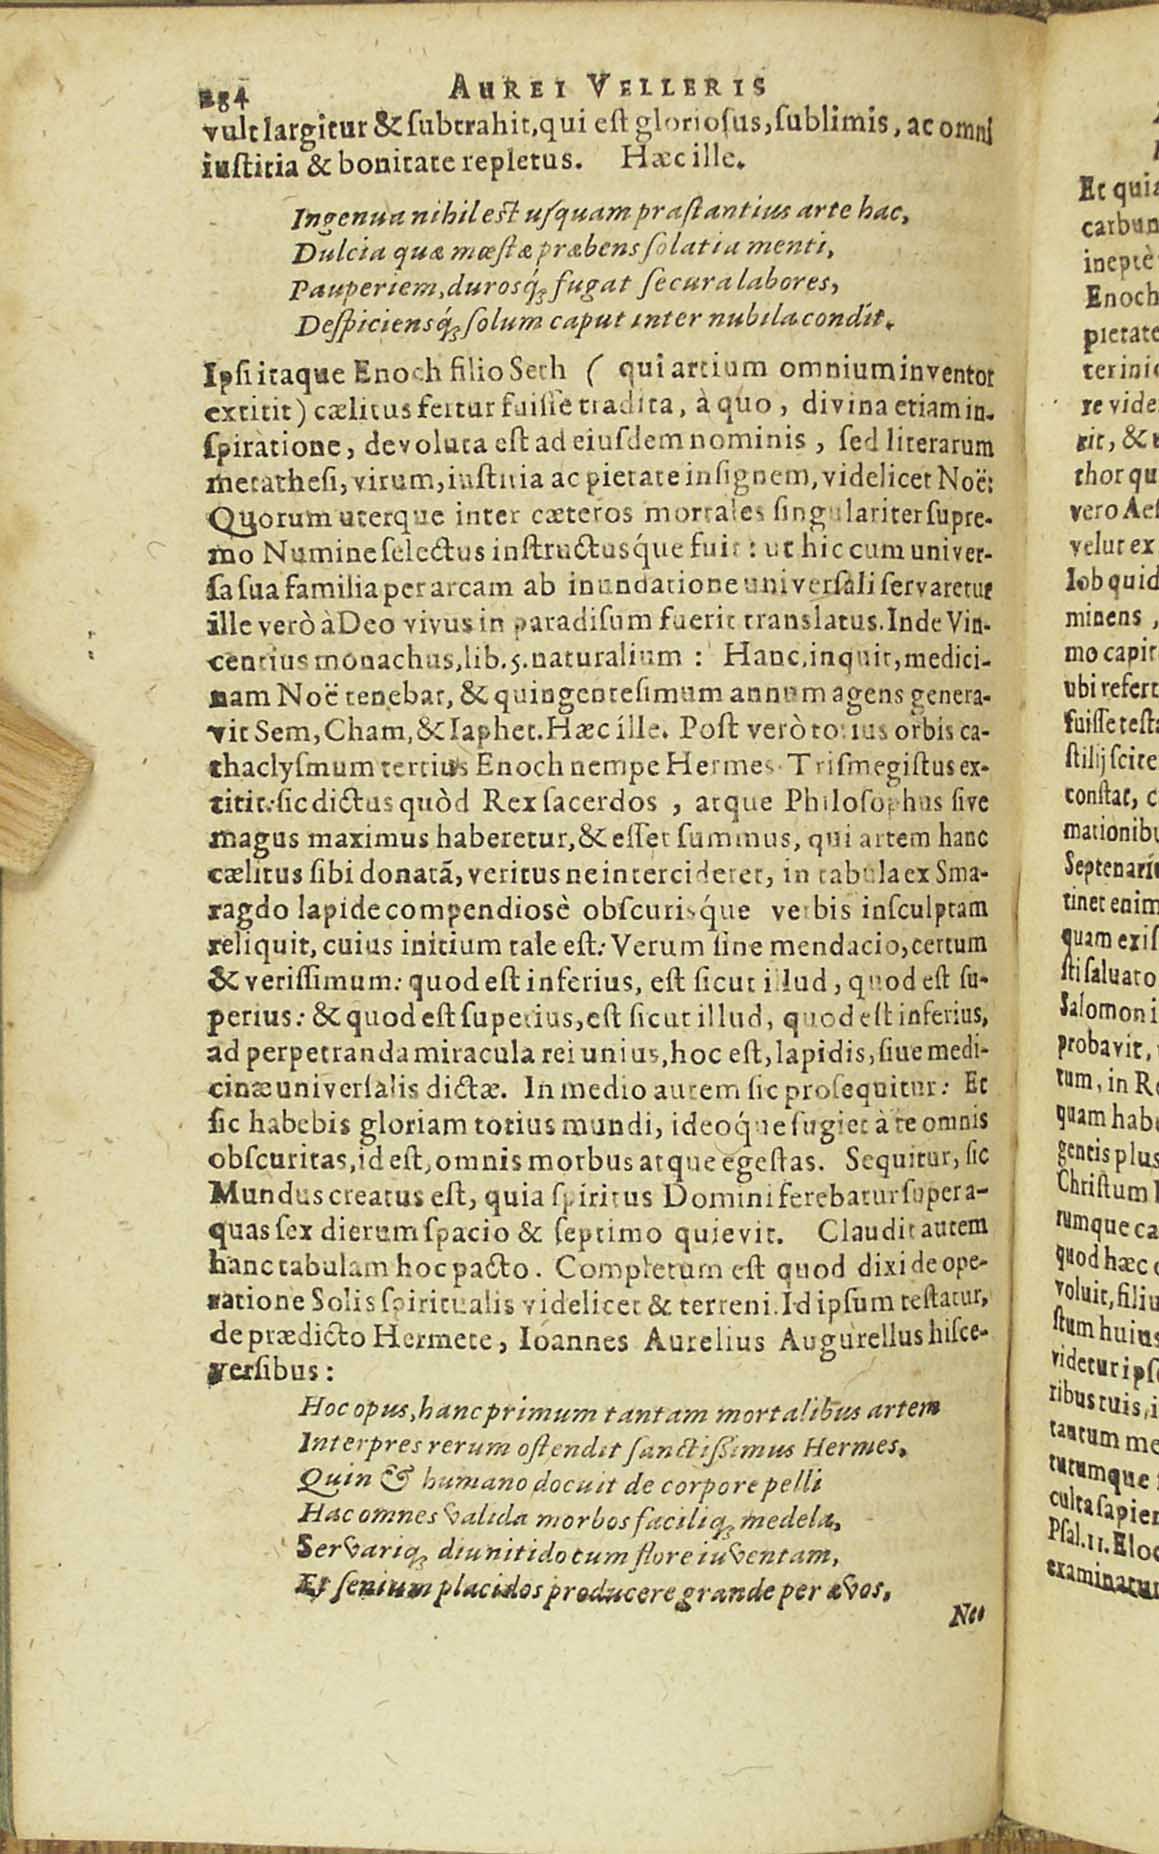 284 AUREI VELLERIS
vult largitur & subtrahit, qui est gloriosus, sublimis, ac omni
iustitia & bonitate repletus. Hæc ille.
Ingenua nihil est usquam præstantius arte hac,
Dulcia quæ mœstæ præbens solatia menti,
Pauperiem, durosq́ꝫ fugat secura labores,
Despiciensq́ꝫ solum caput inter nubila condit.
Ipsi itaque Enoch filio Seth ( qui artium omnium inventor
extitit) cælitus fertur fuisse tradita, à quo, divina etiam in-
spiratione, devoluta est ad eiusdem nominis, sed literarum
metathesi, virum, iustitia ac pietate insignem, videlicet Noë:
Quorum uterque inter cæteros mortales singulariter supre-
mo Numine selectus instructusq́ue fuit: ut hic cum univer-
sa sua familia per arcam ab inundatione universali servaretur
ille verò à Deo vivus in paradisum fuerit translatus. Inde Vin-
centius monachus, lib. 5. naturalium: Hanc, inquit, medici-
nam Noë tenebat, & quingentesimum annum agens genera-
vit Sem, Cham, & Iaphet. Hæc ille. Post verò totius orbis ca-
thaclysmum tertius Enoch nempe Hermes Trismegistus ex-
titit: sic dictus quòd Rex sacerdos, atque Philosophus sive
magus maximus haberetur, & esset summus, qui artem hanc
cælitus sibi donatã, veritus ne intercideret, in tabula ex Sma-
ragdo lapide compendiosè obscurisq́ue verbis insculptam
reliquit, cuius initium tale est: Verum sine mendacio, certum
& verissimum: quod est inferius, est sicut illud, quod est su-
perius: & quod est superius, est sicut illud, quod est inferius,
ad perpetranda miracula rei unius, hoc est, lapidis, siue medi-
cinæ universalis dictæ. In medio autem sic prosequitur: Et
sic habebis gloriam totius mundi, ideoq́ue fugiet à te omnis
obscuritas, id est, omnis morbus atque egestas. Sequitur, sic
Mundus creatus est, quia spiritus Domini ferebatur super a-
quas sex dierum spacio & septimo quievit. Claudit autem
hanc tabulam hoc pacto. Completum est quod dixi de ope-
ratione Solis spiritualis videlicet & terreni. Id ipsum testatur,
de prædicto Hermete, Ioannes Aurelius Augurellus hisce-
versibus:
Hoc opus, hanc primum tantam mortalibus artem
Interpres rerum ostendit sanctissimus Hermes.
Quin & humano docuit de corpore pelli
Hac omnes valida morbos faciliqꝫ medela,
Servariqꝫ diu nitido cum flore iuventam,
Et senium placidos producere grande per ævos.
Nec
Et quia
carbun
ineptè
Enoch
pietate
terini
re vide
rit, &
thor qu
vero Aes
velut ex
Iob quid
minens,
mo capit
ubi refert
fuisse testa
stilij scire
constat, c
mationibu
Septenariu
tinet enim
quam exis
sti saluato
Salomoni
probavit,
tum, in Re
quam habu
gentis plus
Christum
rumque ca
quod hæc
voluit, filiu
stum huius
videtur ips
ribus tuis, i
tantum me
tutumque
culta sapien
Psal. 11. Eloq
examinatum